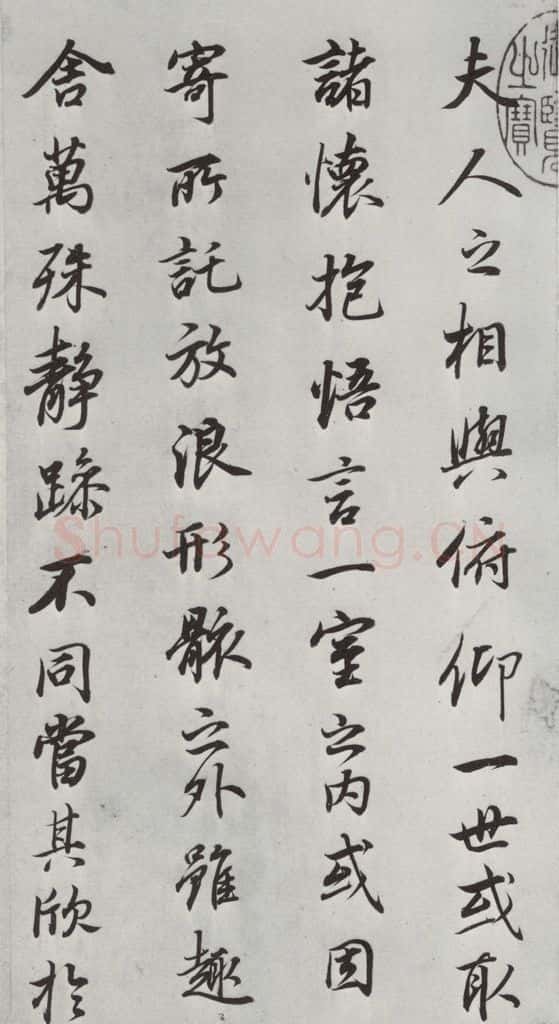 夫人之相與俯仰一世或取
諸懷抱悟言一室之內或因
寄所託放浪形骸之外雖趣
舍萬殊靜躁不同當其欣於
之寶
Shufawang.CN